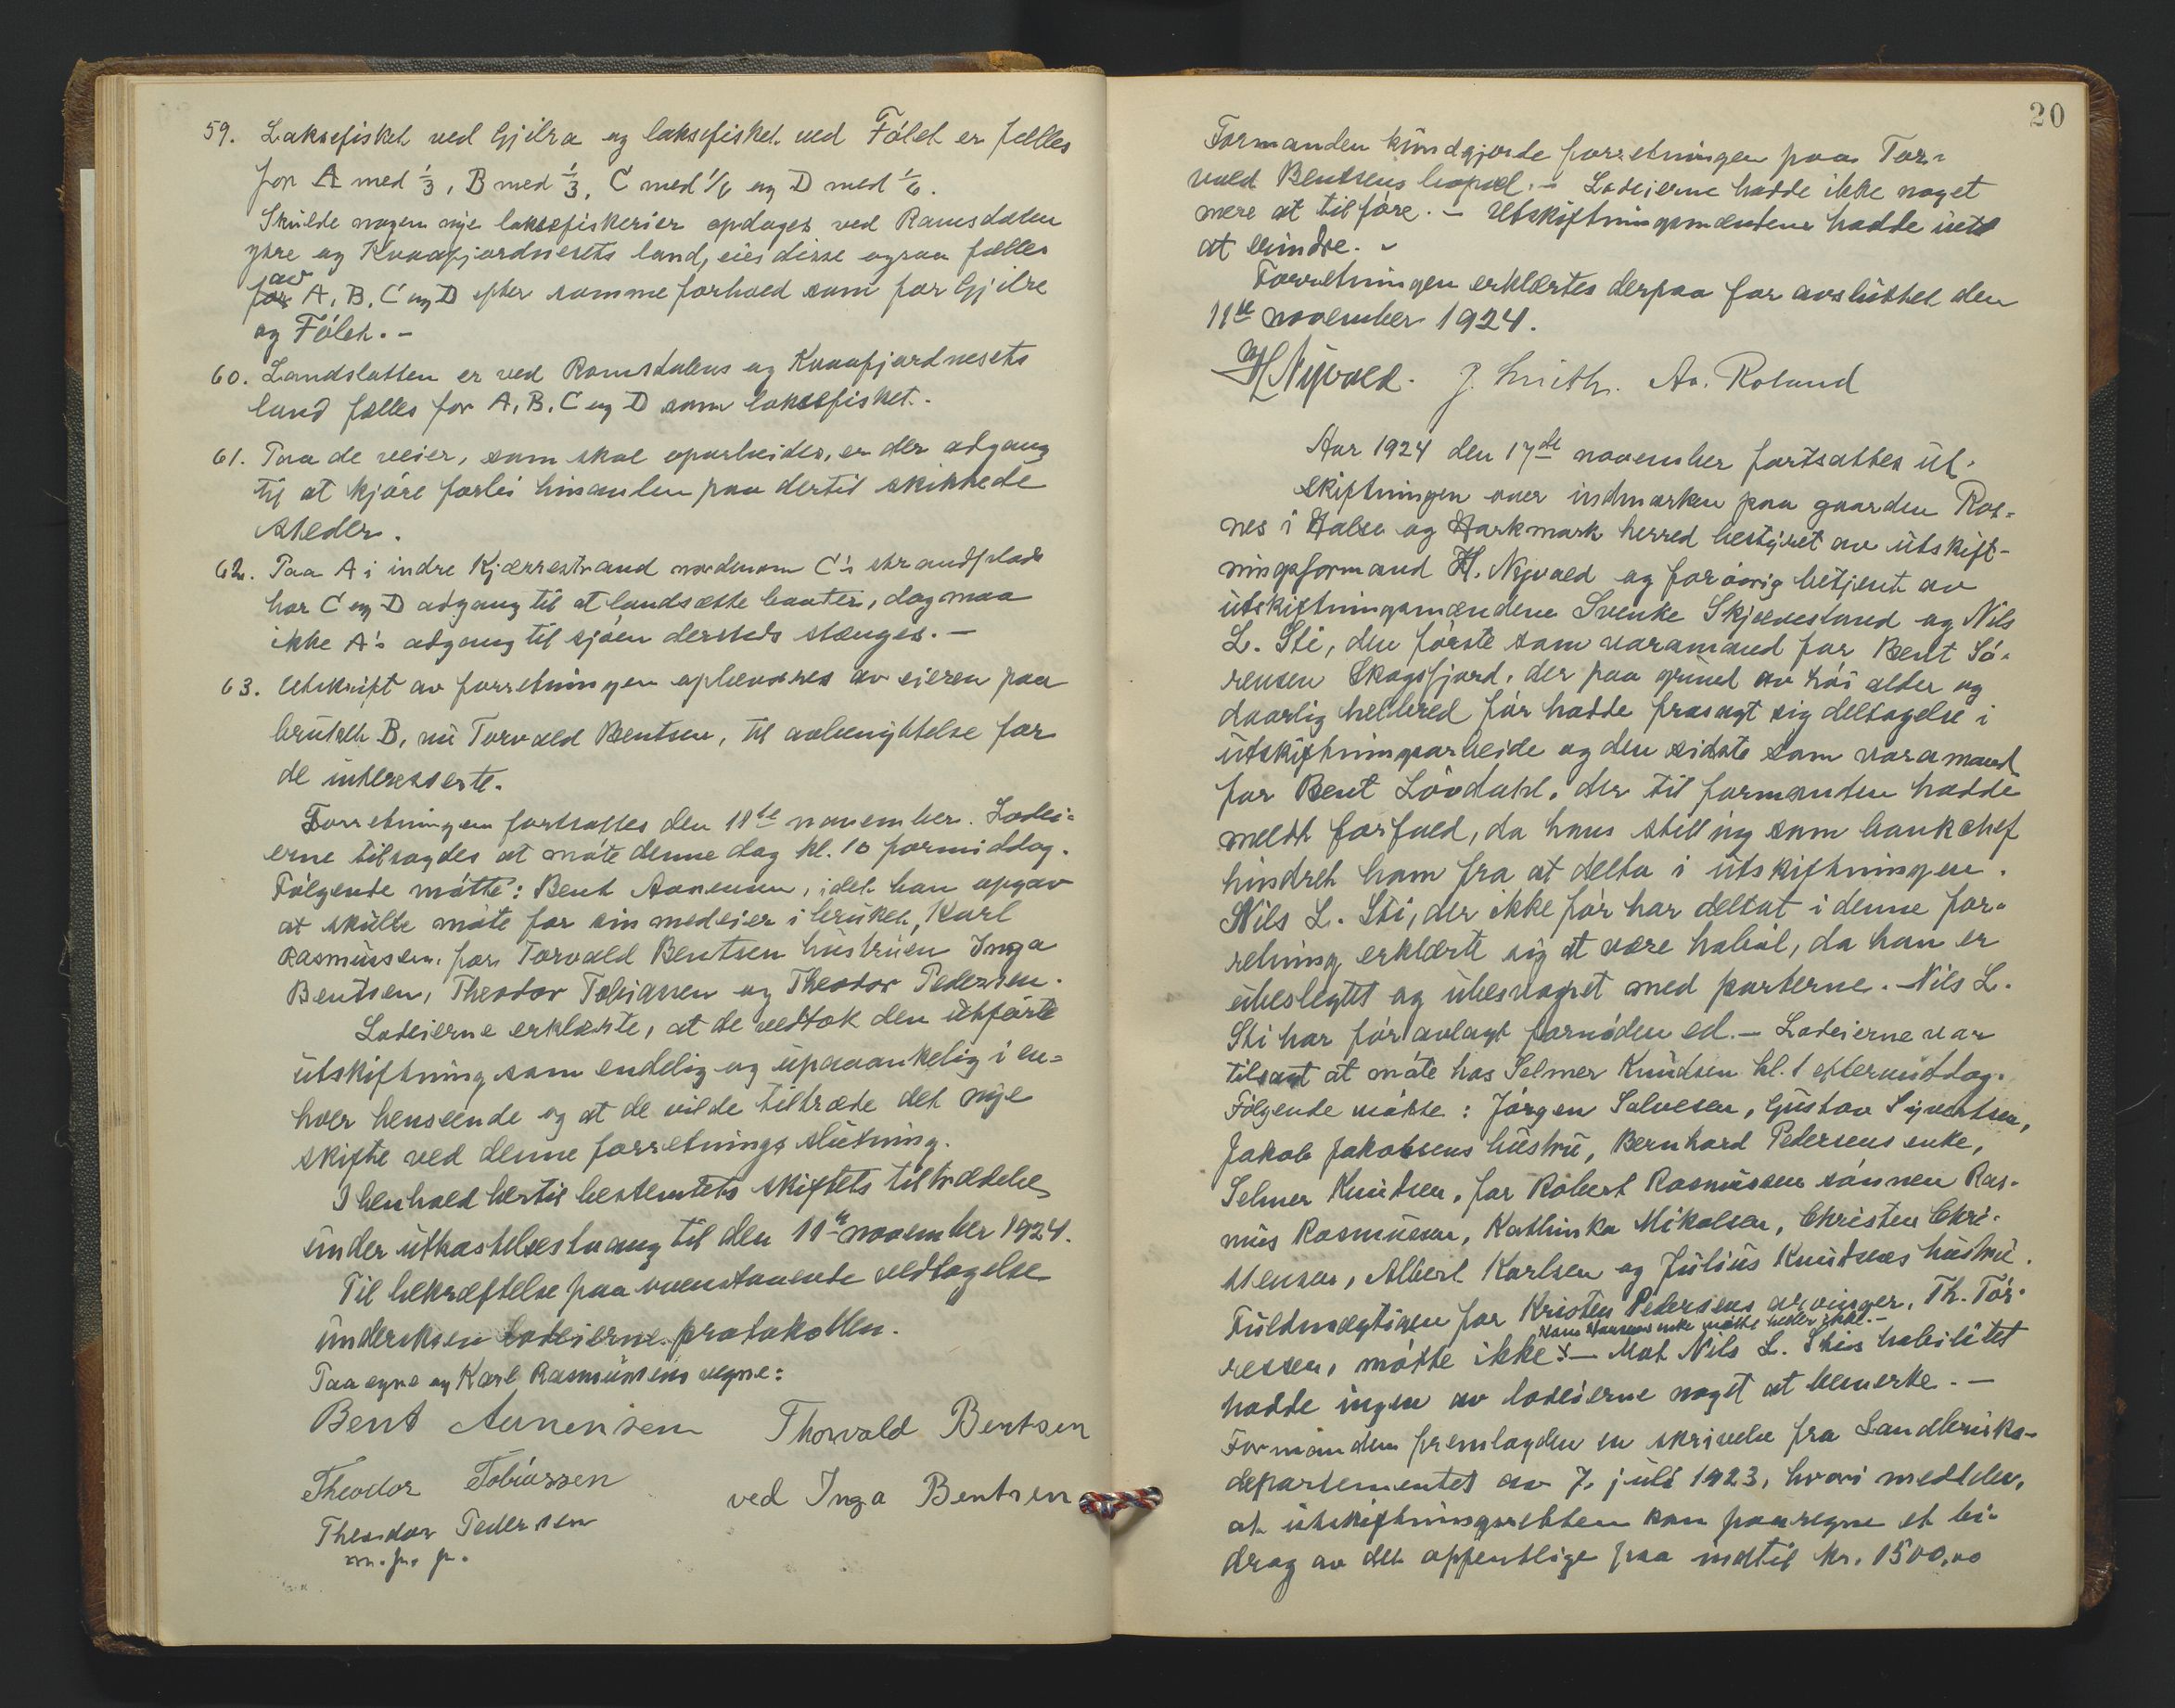 59. Laksefisket ved Gjilra og laksefisket ved Fölet er fælles
for A med 1/3, B med 1/3, C med 1/6 og D med 1/6.
Skulde nogen nye laksefiskerier opdages ved Ramsdalen
ytre og Kvaafjordnesets land, eies disse ogsaa fælles
av
for A, B, C og D efter samme forhold som for Gjilre
og Fölet. -
60. Landslotten er ved Ramsdalens og Kvaafjordnesets
land fælles for A, B, C og D som laksefisket. -
61. Paa de veier, som skal oparbeides, er der adgang
til at kjöre forbi hinanden paa dertil skikkede
steder.
62. Paa A i indre Kjærrestrand nordenom C's strandplads
har C og D adgang til at landsætte baater, dog maa
ikke A's adgang til sjöen dersteds stænges. -
63. Utskrift av forretningen opbevares av eieren paa
bruket B, nu Torvald Bentsen, til avbenyttelse for
de interesserte.
Forretningen fortsattes den 11te november. Lodei=
erne tilsagdes at möte denne dag kl. 10 formiddag.
Fölgende mötte: Bent Aanensen, idet han opgav
at skulde möte for sin medeier i bruket, Karl
Rasmussen, for Torvald Bentsen hustruen Inga
Bentsen, Theodor Tobiassen og Theodor Pedersen.
Lodeierne erklærte, at de vedtok den utförte
utskiftning som endelig og upaaankelig i en=
hver henseende og at de vilde tiltræde det nye
skifte ved denne forretnings slutning.
I henhold hertil bestemtes skiftets tiltrædelse
under utkastelsestvang til den 11te november 1924.
Til bekræftelse paa ovenstaaende vedtagelse
underskrev lodeierne protokollen.
Paa egne og Karl Rasmussens vegne:
Bent Aanensen Thorvald Bentsen
Theodor Tobiassen ved Inga Bentsen
Theodor Pedersen
m. p. p.
20
Formanden kundgjorde forretningen paa Tor=
vald Bentsens bopæl. - Lodeierne hadde ikke noget
mere at tilföre. - Utskiftningsmændene hadde intet
at erindre. -
Forretningen erklærtes derpaa for avsluttet den
11te november 1924.
H Nyvold. J. Smith. Aa. Roland
Aar 1924 den 17de november fortsattes ut=
skiftningen over indmarken paa gaarden Ros=
nes i Halse og Harkmark herred bestyret av utskift-
ningsformand H. Nyvold og forövrig betjent av
utskiftningsmændene Svenke Skjævesland og Nils
L. Sti, den förste som varamand for Bent Sö=
rensen Skogsfjord, der paa grund av höi alder og
daarlig helbred för hadde frasagt sig deltagelse i
utskiftningsarbeide og den sidste som varamand
for Bent Lövdahl, der til formanden hadde
meldt forfald, da hans stilling som bankchef
hindret ham fra at delta i utskiftningen.
Nils L. Sti, der ikke för har deltat i denne for=
retning erklærte sig at være habil, da han er
ubeslegtet og ubesvogret med parterne. Nils L.
Sti har för avlagt fornöden ed. - Lodeierne var
tilsagt at möte hos Selmer Knudsen kl. 1 eftermiddag.
Fölgende mötte: Jörgen Salvesen, Gustav Syvertsen,
Jakob Jakobsens hustru, Bernhard Pedersens enke,
Selmer Knudsen, for Robert Rasmussen sönnen Ras=
mus Rasmussen, Kathinka Mikalsen, Christen Chri=
stensen, Albert Karlsen og Julius Knudsens hustru.
Fuldmægtigen for Kristen Pedersens arvinger, Th. Tör=
Hans Hansens enke mötte heller ikke. -
ressen, mötte ikke. - Mot Nils L. Stis habilitet
hadde ingen av lodeierne noget at bemerke. -
Formanden fremlagde en skrivelse fra Landbruks-
departementet av 7. juli 1923, hvori meddeles,
at utskiftningsretten kan paaregne et bi=
drag av det offentlige paa indtil kr. 1500,00